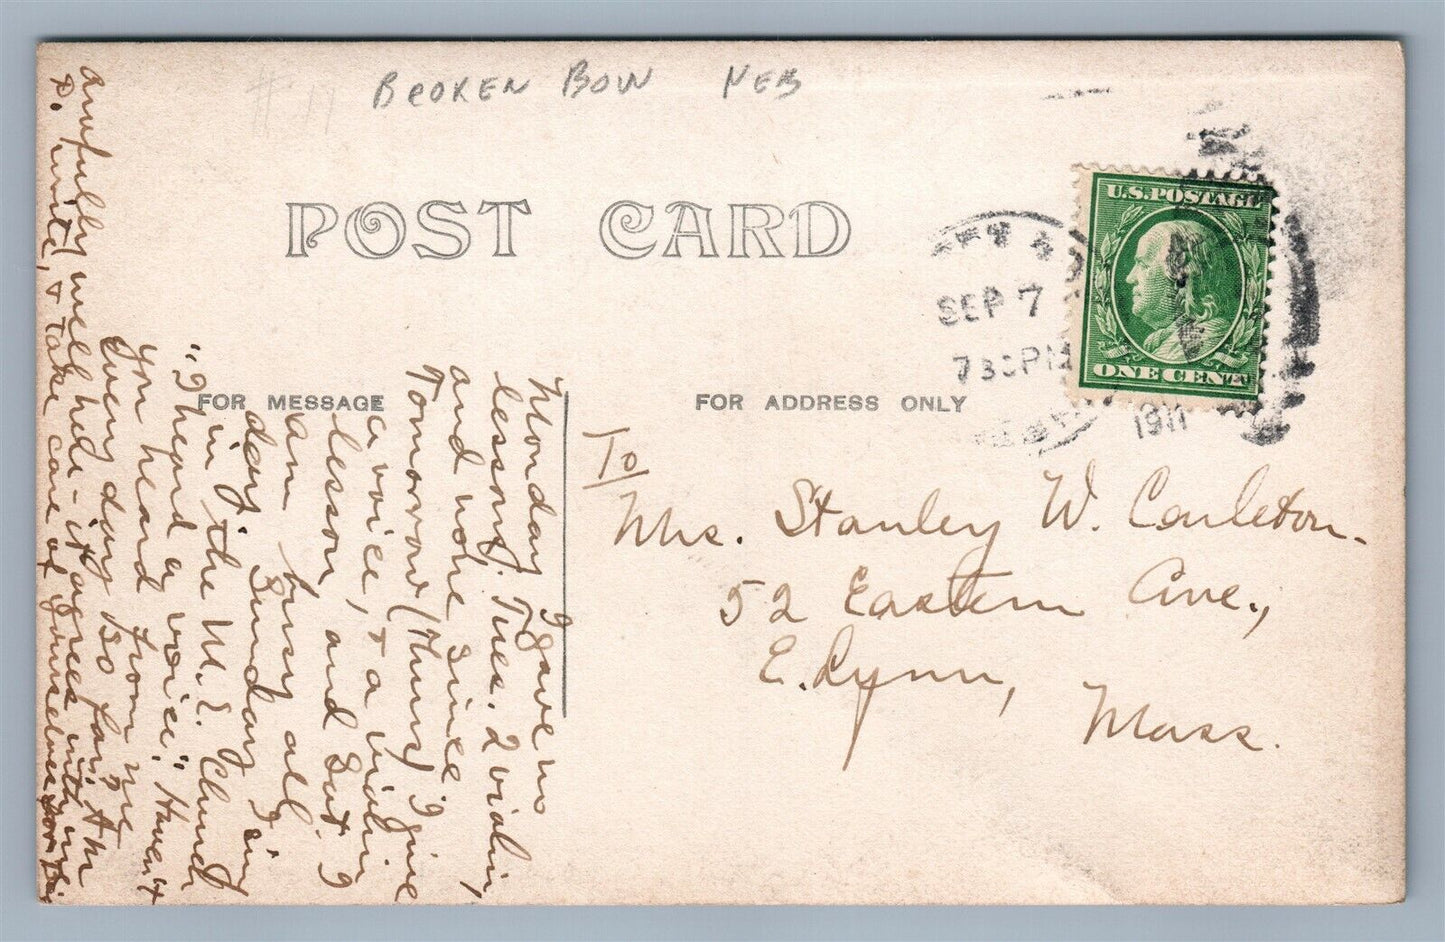 # 17
BROKEN BOW NEB
POST CARD
U.S. POSTAGE
ONE CENT
SEP 7
730PM
1911
FOR MESSAGE
FOR ADDRESS ONLY
I gave no
Monday
lessons. Tues. 2 violin,
and none since.
Tomorrow (Thurs) I give
a voice, & a violin
lesson, and Sat I
am busy all
day. Sunday I sing
in the M.E. Church
"I heard a voice." Haven't
you heard from me
every day so far? Am
awfully well here - it agrees with me
P. write, & take care of yourselves for
To
Mrs. Stanley W. Carleton.
52 Eastern Ave.,
E. Lynn,
Mass.